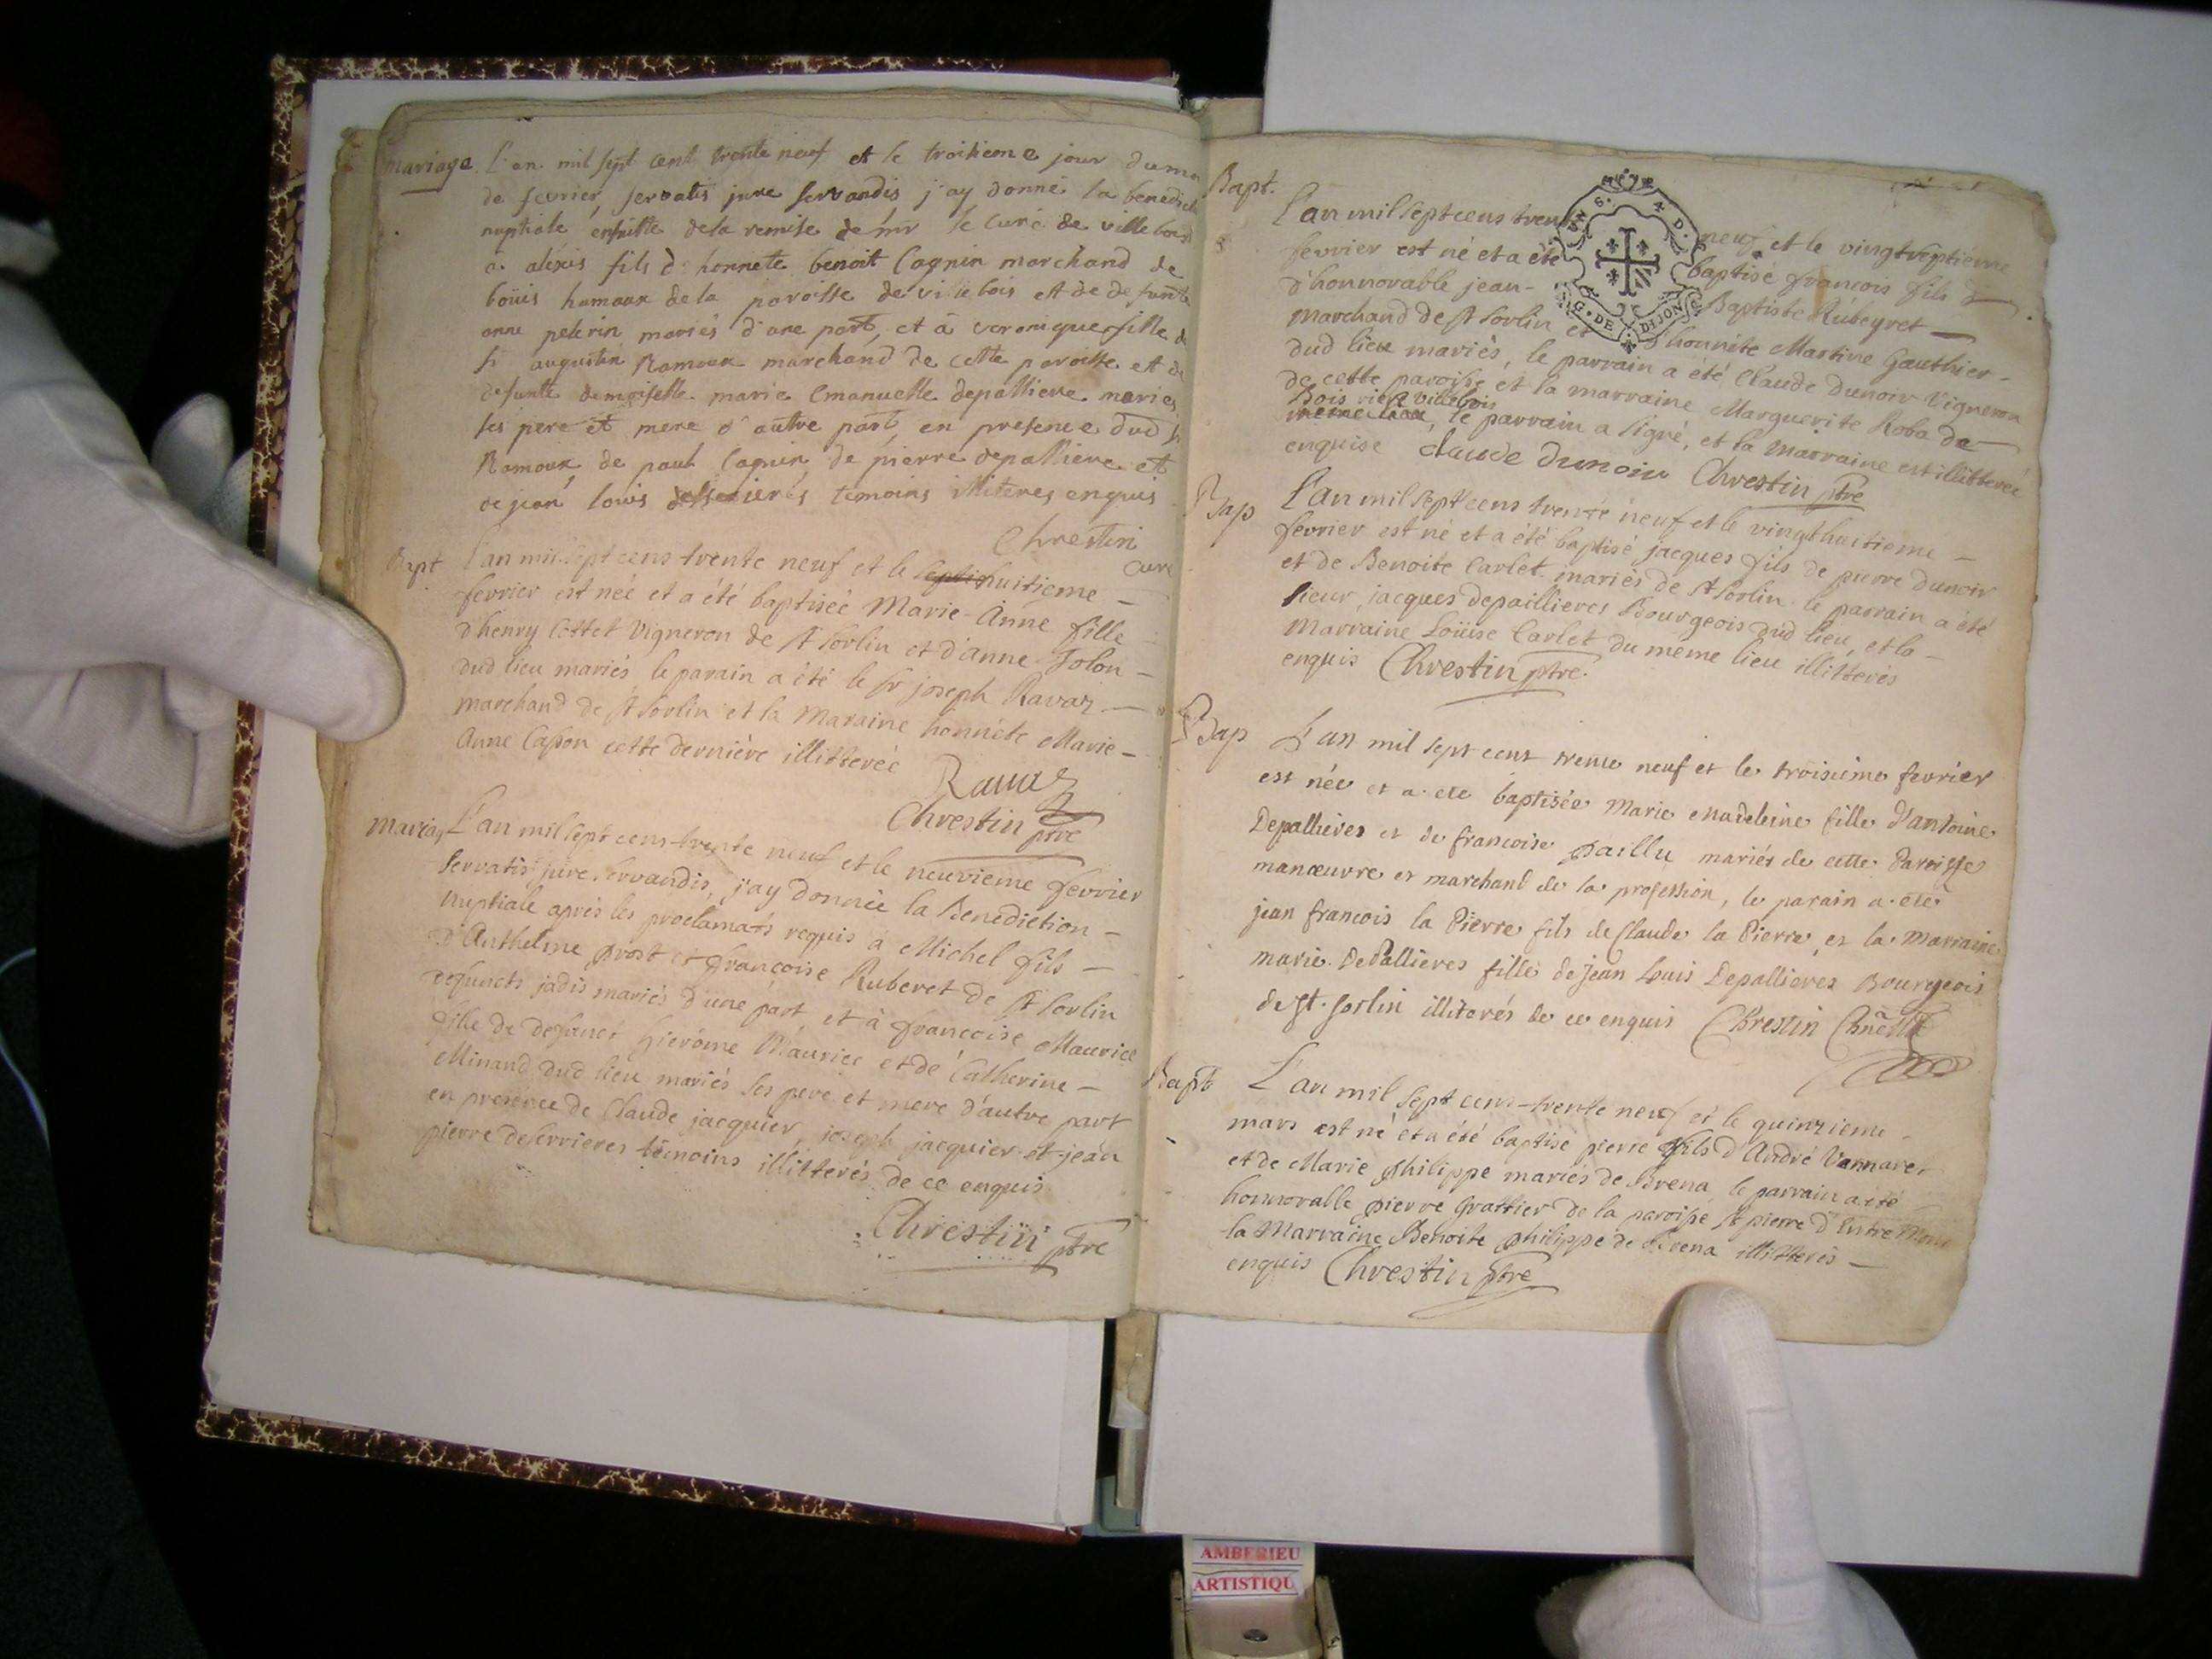 mariage L'an mil sept cent trente neuf et le troisieme jour du mo
de fevrier, servatis jure servandis j'ay donné la benedicti
nuptiale ensuitte de la remise de mr le curé de villebois
a alexis fils d'honnete benoit Cagnin marchand de
boüis hamaux de la paroisse de villebois et de defunte
anne pelerin mariés d'une part, et à veronique fille de
sr augustin Ramoux marchand de cette paroisse et de
defunte demoiselle marie emanuelle depalliere mariés
ses pere et mere d'autre part, en presence dud sr
Ramoux, de paul Cagnin, de pierre depalliere et
de jean louis desserieres temoins illiteres enquis
Chrestin
curé
Bapt L'an mil sept cens trente neuf et le septi huitieme
fevrier est née et a été baptisée Marie-Anne fille
d'henry Cottet Vigneron de St Sorlin et d'anne Jolon
dud lieu mariés, le parain a été le sr joseph Ravaz
marchand de St Sorlin et la Maraine honnête Marie
Anne Casson cette derniére illitterée
Ravaz
Chrestin ptre
Mariag L'an mil sept cens trente neuf et le neuvieme fevrier
servatis jure servandis, j'ay donnée la Benediction
nuptiale aprés les proclamats requis a Michel fils
d'Anthelme prost et françoise Ruberet de St Sorlin
defuncts jadis mariés d'une part et à françoise Maurice
fille de defunct hierôme Maurice et de Catherine
Minand dud lieu mariés ses pere et mere d'autre part
en presence de Claude jacquier, joseph jacquier et jean
pierre deserrieres témoins illitterés de ce enquis
Chrestin ptre
Bapt. L'an mil sept cens trente neuf et le vingtseptiéme
fevrier est né et a été baptisé françois fils d
d'honnorable jean- Baptiste Rubeyret
marchand de St Sorlin et honnête Martine Gauthier
dud lieu mariés, le parrain a été Claude dunoir Vigneron
de cette paroisse et la marraine Marguerite Roba de
Bois rie villebois
meme lieu, le parrain a signé, et la marraine est illitterée
enquise Claude dunoiu Chrestin ptre
G. DE DIJON
Bap L'an mil sept cens trente neuf et le vingthuitieme
fevrier est né et a été baptisé jacques fils de pierre dunoir
et de Benoite Carlet mariés de St Sorlin le parrain a été
sieur jacques depaillieres Bourgeois dud lieu, et la
Marraine Loüise Carlet du meme lieu illitterés
enquis Chrestin ptre.
Bap L'an mil sept cens trente neuf et le troisiéme fevrier
est née et a été baptisée Marie Madeleine fille d'antoine
Depallieres et de francoise paillu mariés de cette Paroisse
manœuvre et marchand de la profession, le parain a été
jean francois la Pierre fils de Claude la Pierre et la Maraine
marie Depallieres fille de jean Louis Depallieres Bourgeois
de St. Sorlin illiterés de ce enquis Chrestin
Bapt L'an mil sept cens trente neuf et le quinzieme
mars est né et a été baptisé pierre fils d'André Vannaret
et de Marie philippe mariés de Brena, le parrain a été
honnorable pierre Grattier de la paroisse St pierre d'Entremon
la Marraine Benoite philippe de Brena illitterés
enquis Chrestin ptre
AMBERIEU
ARTISTIQU